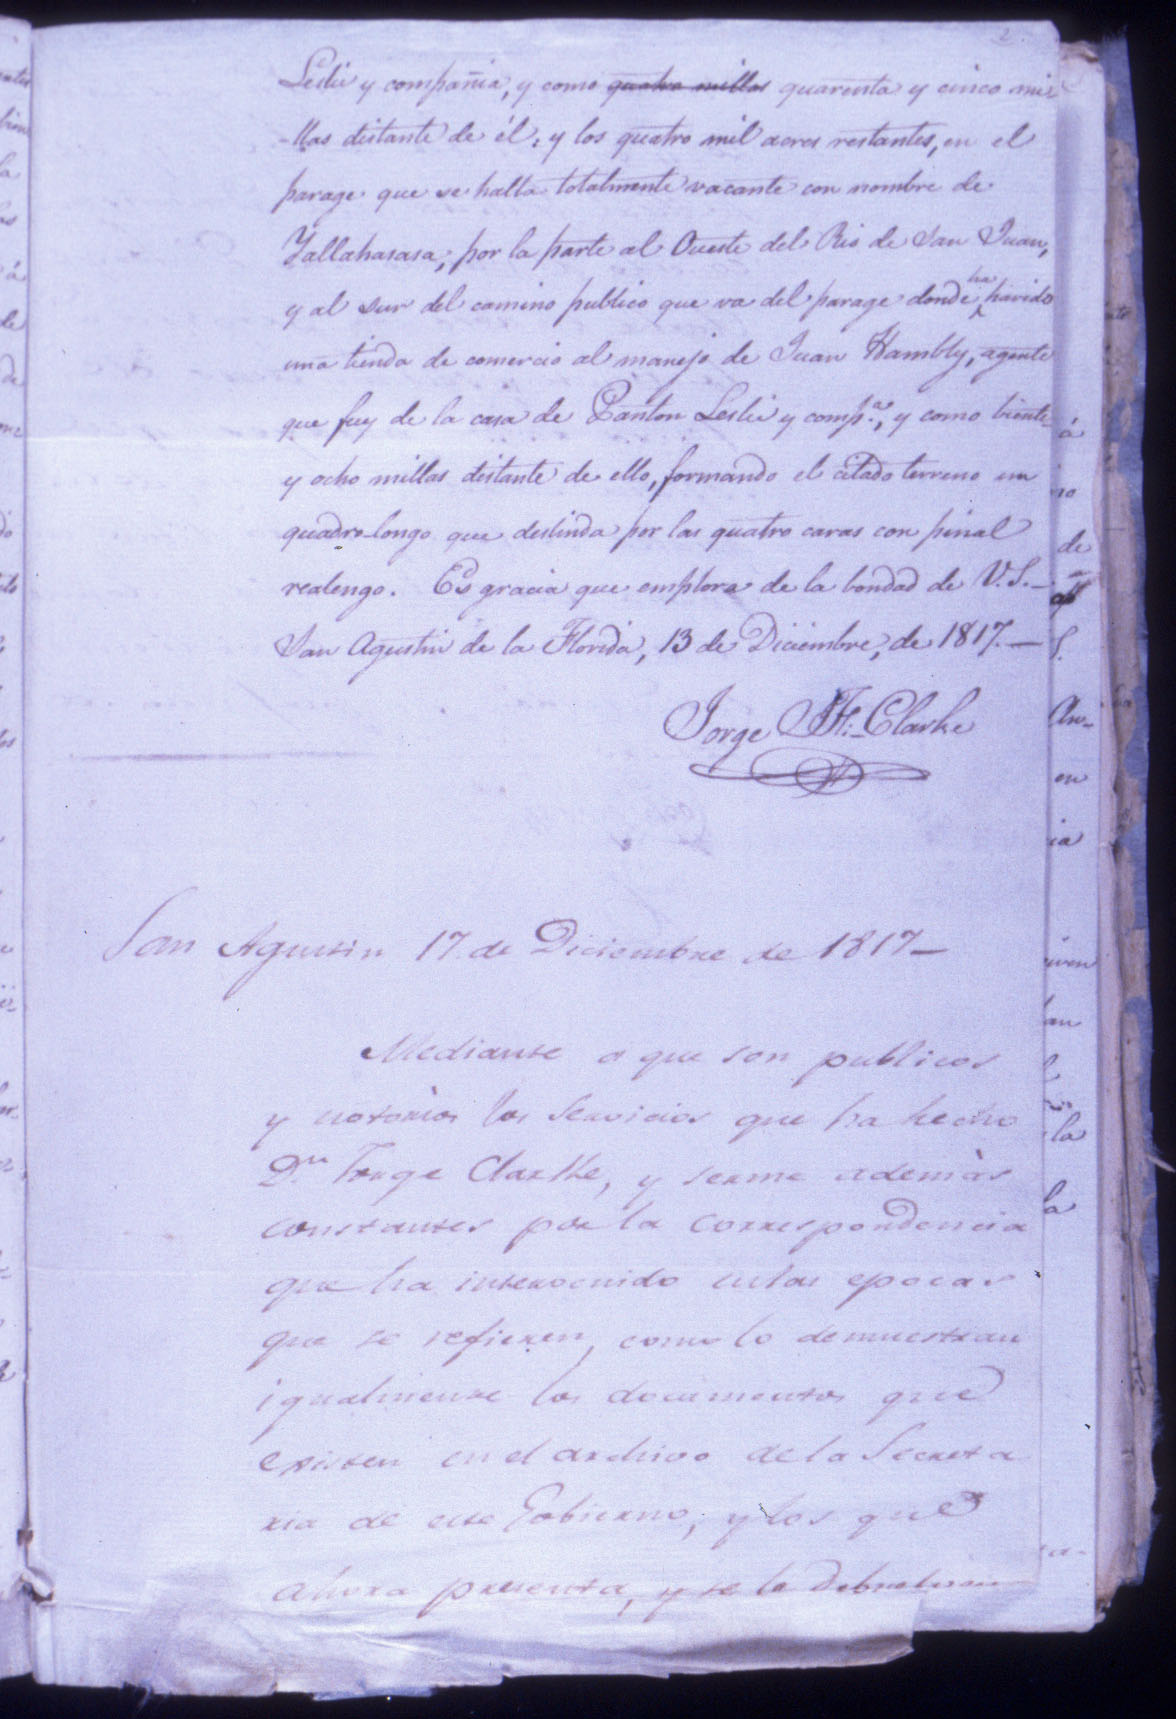 2.
Leslie y compañia, y como quatro millas quarenta y cinco mi-
-llas distante de él; y los quatro mil acres restantes, en el
parage que se halla totalmente vacante con nombre de
Yallahasasa, por la parte al Oueste del Rio de San Juan,
y al sur del camino publico que va del parage donde ha havido
una tienda de comercio al manejo de Juan Hambly, agente
que fuy de la casa de Panton Leslie y comp.a, y como biente
y ocho millas distante de ello, formando el citado terreno un
quadro-longo que deslinda por las quatro caras con pinal
realengo. Es gracia que emplora de la bondad de V.S.—
San Agustin de la Florida, 13 de Diciembre, de 1817.—
Jorge J. F. Clarke
San Agustin 17 de Diciembre de 1817—
Mediante a que son publicos
y notorios los Servicios que ha hecho
Dn. Jorge Clarke, y serme además
constantes por la correspondencia
que ha intervenido en las epocas
que se refieren, como lo demuestran
igualmente los documentos que
existen en el archivo de la Secreta
ria de este Gobierno, y los que
ahora presenta, y se le debuelven